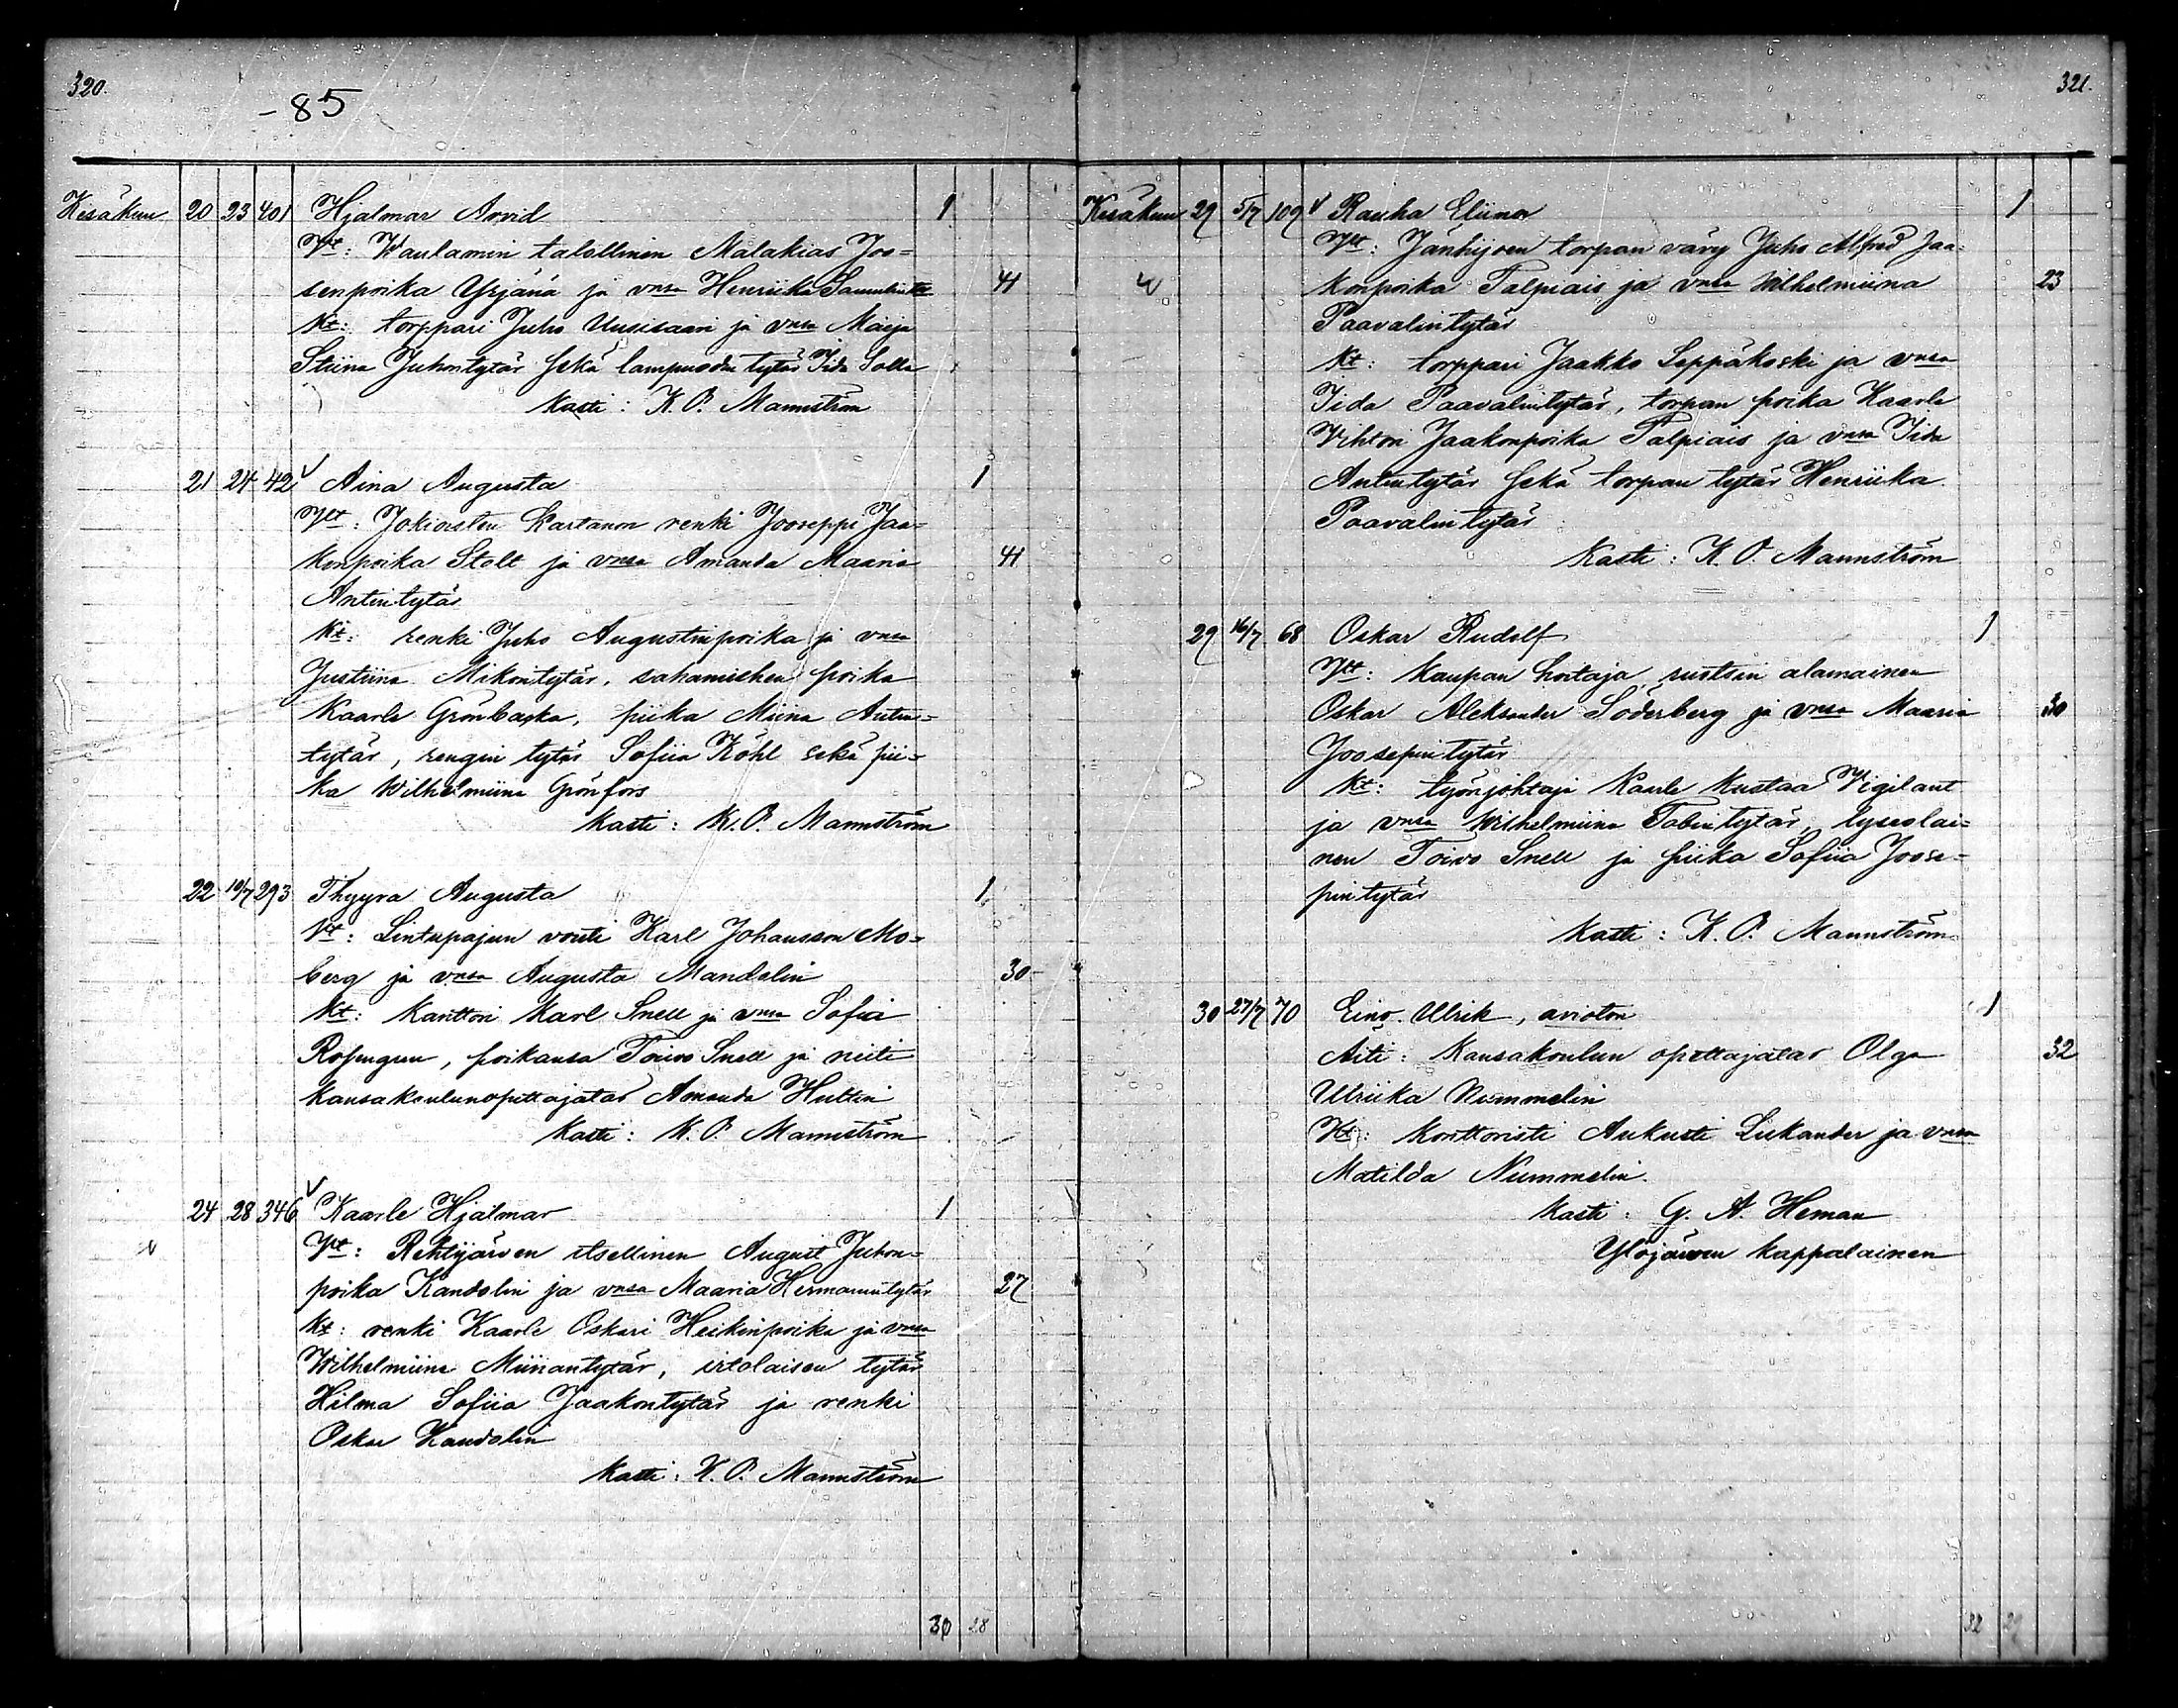 320.
-85
Kesäkuu 20 23 401 Hjalmar Arvid 1
Vt: Waulamin talollinen Malakias Joo=
senpoika Yrjänä ja vmsa Henriika 41
Kt: torppari Juho Uusisaari ja vmsa Maija
Stiina Juhontytär sekä lampuodin tytär Iida Solla
Kasti: K. O. Mannström
21 24 42 √ Aina Augusta 1
Vt: Jokioisten Kartanon renki Jooseppi Jaa=
konpoika Stolt ja vmsa Amanda Maaria 41
Antintytär
Kt: renki Juho Augustinpoika ja vmsa
Justiina Mikontytär, sahamiehen poika
Kaarle Grönbacka, piika Miina Antin=
tytär, rengin tytär Sofiia Köhl sekä pii=
ka Wilhelmiina Grönfors
Kasti: K. O. Mannström
22 10/7 293 Thyyra Augusta 1
Vt: Lintupajun vouti Karl Johansson Mo=
berg ja vmsa Augusta Mandelin 30
Kt: Kanttori Karl Snell ja vmsa Sofia
poikansa Toivo Snell ja neiti
kansakoulunopettajatar Amanda Hultin
Kasti: K. O. Mannström
24 28 346 √ Kaarle Hjalmar 1
Vt: Rehtijärven itsellinen August Juhon=
poika Kandolin ja vmsa Maaria Hermannintytär 27
Kt: renki Kaarle Oskari Heikinpoika ja vmsa
Wilhelmiina Miinantytär, irtolaisen tytär
Hilma Sofiia Jaakontytär ja renki
Oskar Kandolin
Kasti: K. O. Mannström
30 28
321.
Kesäkuu 29 5/7 109 √ Rauha Eliina 1
Vt: Jänhijoen torpan vävy Juho Alfred Jaa=
konpoika Talpiais ja vmsa Wilhelmiina 23
Paavalintytär
Kt: torppari Jaakko Seppäkoski ja vmsa
Iida Paavalintytär, torpan poika Kaarle
Vihtori Jaakonpoika Talpiais ja vmsa Iida
Antintytär sekä torpan tytär Henriika
Paavalintytär
Kasti: K. O. Mannström
29 16/7 68 Oskar Rudolf 1
Vt: Kaupan hoitaja, ruotsin alamainen
Oskar Aleksander Söderberg ja vmsa Maaria 30
Joosepintytär
Kt: työnjohtaja Kaarle Kustaa Vigilant
ja vmsa Wilhelmiina Tobintytär, lyseolai=
nen Toivo Snell ja piika Sofiia Joose=
pintytär
Kasti: K. O. Mannström
30 27/7 70 Eino Ulrik, avioton 1
Äiti: Kansakoulun opettajatar Olga 32
Ulriika Nummelin
Kt: Konttoristi Aukusti Liikander ja vmsa
Matilda Nummelin.
Kasti: G. A. Heman
Ylöjärven kappalainen
32 29